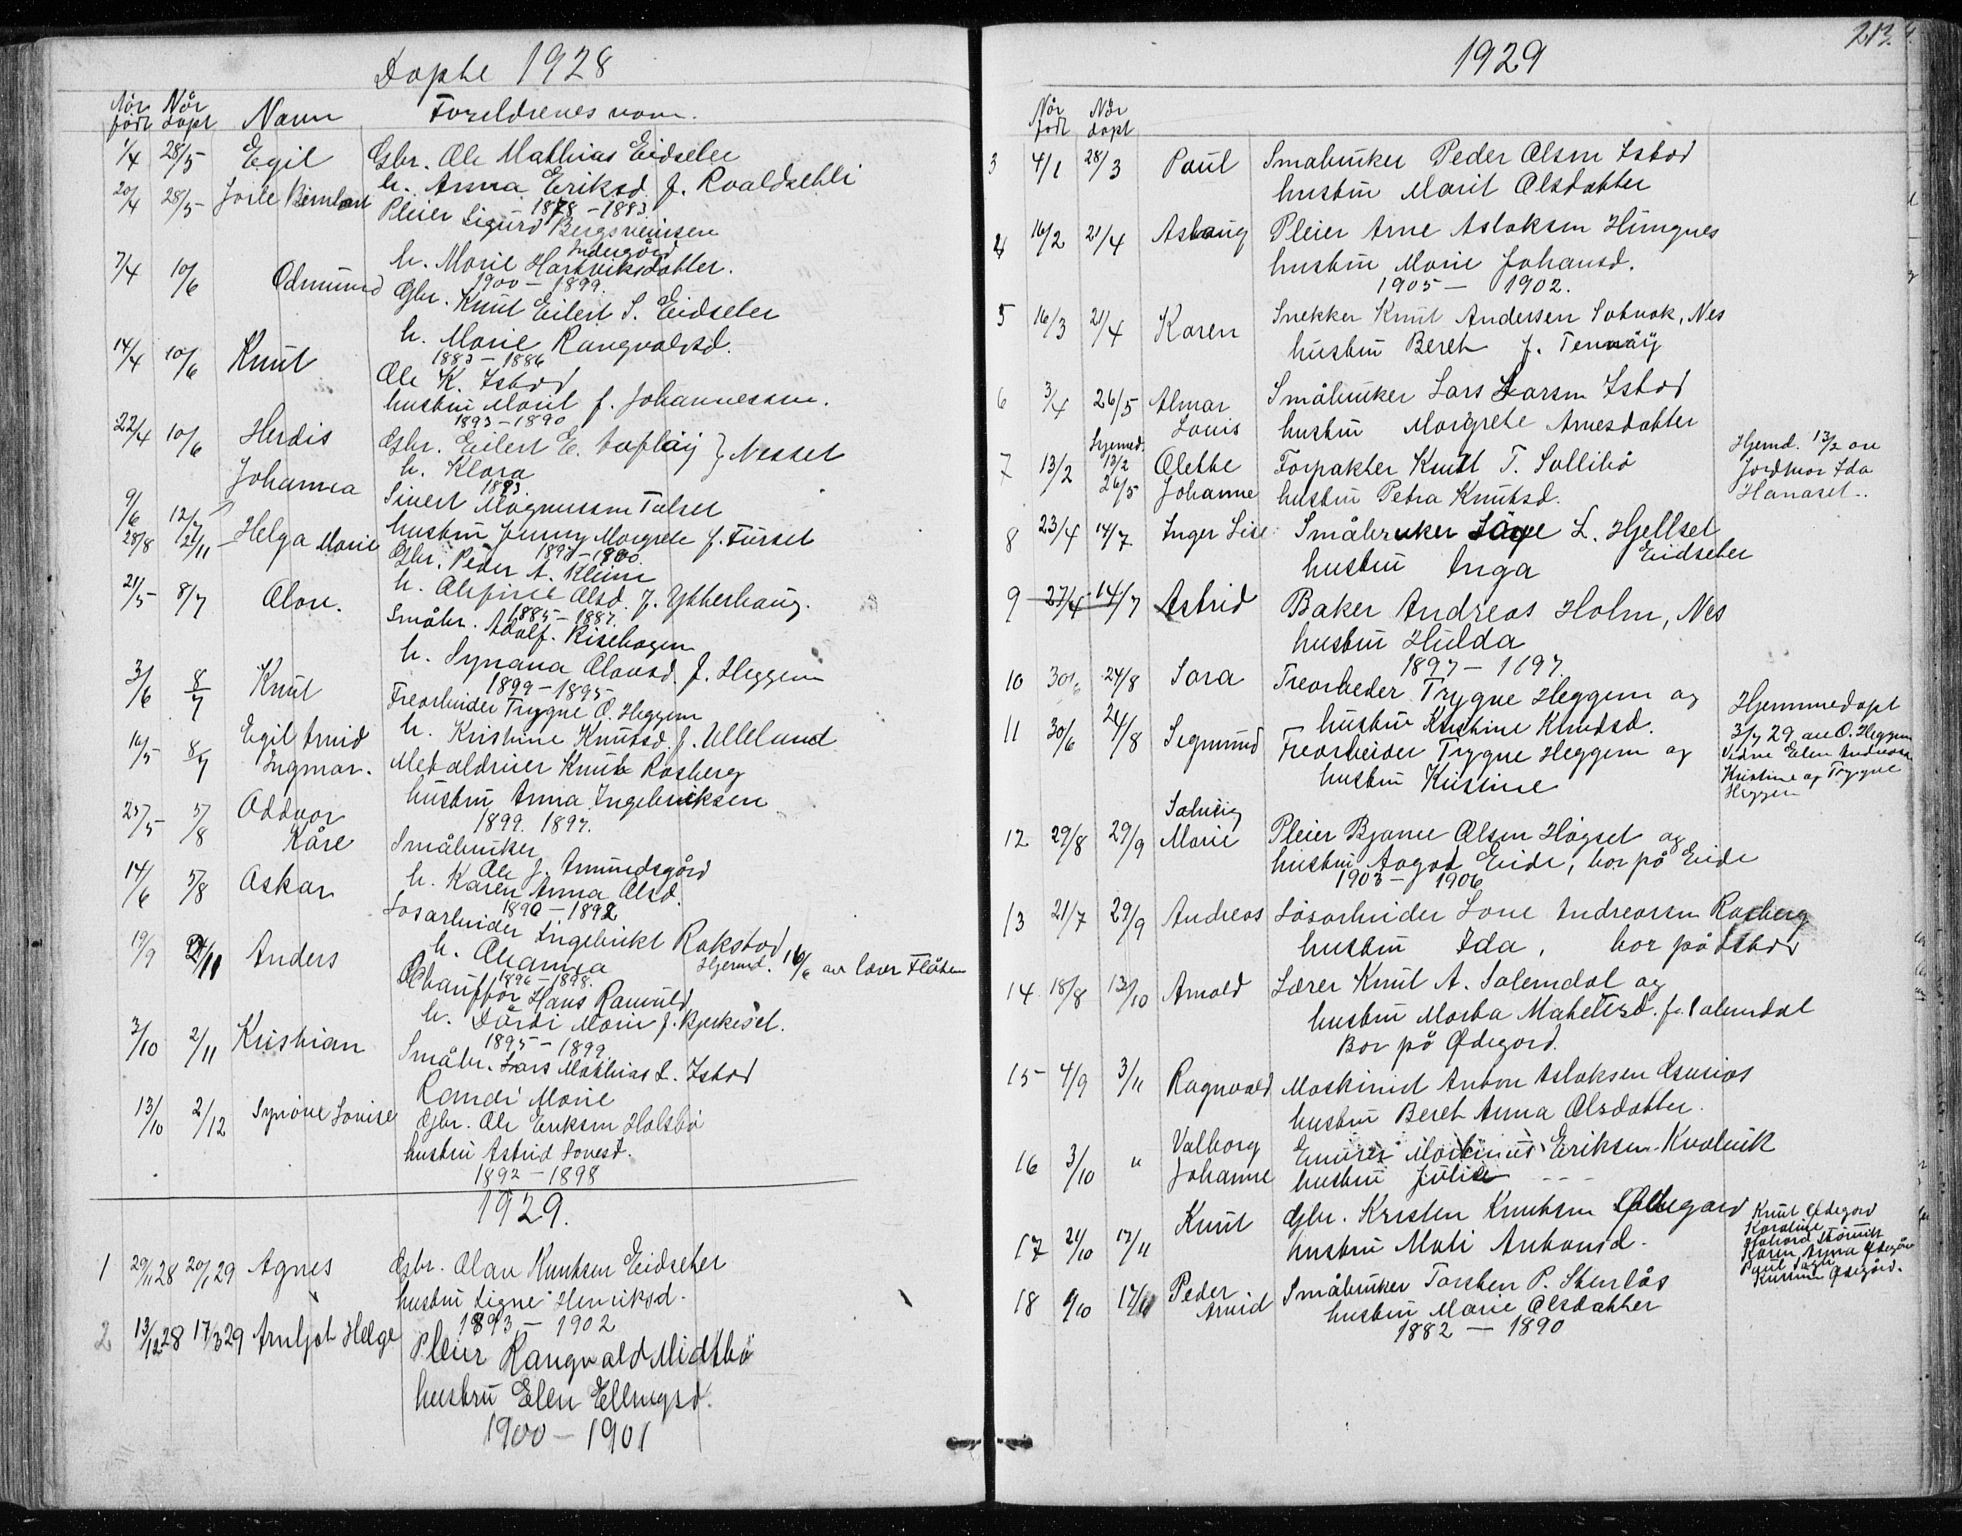 Døpte 1928
Når født Når døpt Navn Foreldrenes navn.
1/4 28/5 Egil Gbr. Ole Mathias Eidseter
h. Anna Eriksd. f. Roaldsetli
1878 - 1883
20/4 28/5 Pleier Sigurd Bergsveinsen
h. Marie Hartviksdatter.
1900 - 1899.
7/4 10/6 Odmund Gbr. Knut Eilert S. Eidseter
h. Marie Rangvalsd.
1883 - 1886
14/4 10/6 Knut Ole K. Istad
hustru Marit f. Johannessen.
1893 - 1890
22/4 10/6 Herdis Johanna Gbr. Eilert E. Nesset
h. Klara
1893
9/6 12/7 Sivert Magnussen
hustru Jenny Margrete f.
28/8 2/11 Helga Marie Gbr. Peder A.
h. Olsd. f. Ytterhaug.
1885 - 1887.
21/5 8/7 Olav. Småbr. Adolf
h. Synnana Olavsd. f. Heggem
1899 - 1895
3/6 8/7 Knut Trearbeider Trygve O. Heggem
h. Kristine Knutsd. f. Ulleland
16/5 8/7 Egil Arvid Ingmar. Metoldriver Knut Rasberg
hustru Anna Ingebriktsen
1899. 1897.
25/5 5/8 Oddvar Kåre Småbruker
Ole J. Amundsgård
h. Karen Anna Olsd.
1890 - 1892
14/6 5/8 Oskar Løsarbeider Ingebrikt Rakstad
h.
1896 - 1898.
19/9 Anders Chauffør Hans Ramuld
Hjemd. 16/6 av lærer Flåten
h. Dårdi Marie f. Bjerkeset.
1895 - 1899.
3/10 2/11 Kristian Småbr. Lars Mathias L. Istad
Randi Marie
13/10 2/12 Synnøve Lovise Gbr. Ole Eriksen Halsbø
hustru Astrid Lovesd.
1892 - 1898
1929.
1 29/11 28 20/1 29 Agnes Gbr. Olav Knutsen Eidseter
hustru Signe Henriksd.
1893 - 1902
2 13/12 28 17/3 29 Arnljot Helge Pleier Rangvald Midtbø
hustru Elen Ellingsd.
1900 - 1901
1929
Når født Når døpt
3 4/1 28/3 Paul Småbruker Peder Olsen Istad
hustru Marit Olsdatter
4 16/2 21/4 Aslaug Pleier Arne Aslaksen Hungnes
hustru Marie Johansd.
1905 - 1902.
5 16/3 21/4 Karen Snekker Knut Andersen Solvak, Nes
hustru Beret f. Tennøy
6 3/4 26/5 Almar Louis Småbruker Lars Larsen Istad
hustru Margrete Arnesdatter
7 13/2 Hjemd. 13/2 26/5 Olette Johanne Forpakter Knut T. Sollibø
hustru Petra Knutsd.
Hjemd. 13/2 av
Jordmor Ida
Hanaset.
8 23/4 14/7 Inger Lise Småbruker L. Hjellset
hustru Inga Eidseter
9 27/4 14/7 Astrid Baker Andreas Holm, Nes
hustru Hulda
1897 - 1897
10 30/6 24/8 Sara Trearbeder Trygve Heggem og
hustru Kristine Knudsd.
11 30/6 24/8 Sigmund Trearbeider Trygve Heggem og
hustru Kristine
Hjemmedøpt
3/7 29 av O. Heggem
Vidne Elen Andreas
Kristine og Trygve
Heggem
12 29/8 29/9 Solveig Marie Pleier Bjarne Olsen Högset og
hustru Aagot Eide, bor på Eide
1903 - 1906
13 21/7 29/9 Andreas Løsarbeider Lone Andreassen Rasberg
hustru Ida, bor på Istad
14 18/8 13/10 Arnold Lærer Knut A. Salemdal og
hustru Marta f. Salemdal
Bor på Ødegård.
15 4/9 3/11 Ragnvald Maskinist Anton Aslaksen
hustru Beret Anna Olsdatter.
16 3/10 " Valborg Johanne Martinus Eriksen Kvalvik
hustru Julie
17 21/10 17/11 Knut Gbr. Kristen Knutsen Ødegård
hustru Mali Antonsd.
Knut Ødegård
Karoline
Karen Anna Ødegård
Ødegård.
18 6/10 17/11 Peder Arvid Småbruker Torsten P. Stenløs
hustru Marie Olsdatter
1882 - 1890